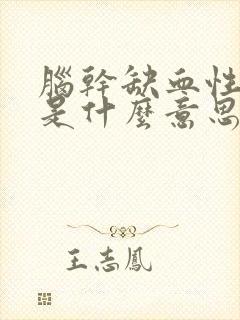 腦幹缺血性
是什麼意思
王志鳳